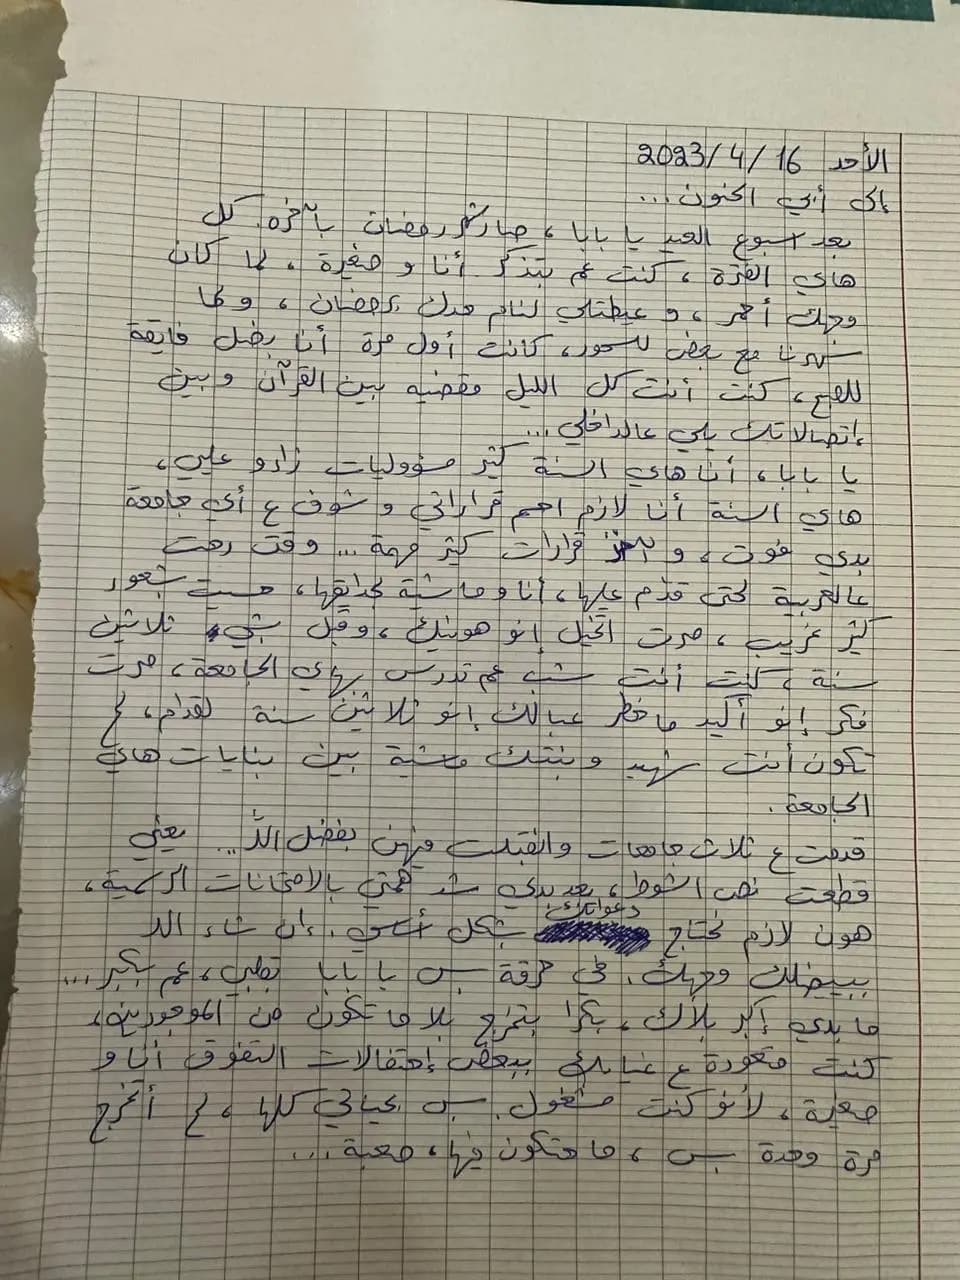 الأحد 16/4/2023
إلى أبي الحنون...
بعد اسبوع العيد يا بابا، صار شهر رمضان بآخره. كل
هاي الفترة، كنت عم بتذكر أنا وصغيرة، لما كان
وجهك أحمر، و عيطتلي لنام حدك برمضان، ولما
سهرنا مع بعض للسحور، كانت أول مرة أنا بضل فايقة
للصبح، كنت أنت كل الليل مقضيه بين القرآن وبين
إتصالاتك يلي عالداخلي...
يا بابا، أنا هاي السنة كتير مسؤوليات زادو علي،
هاي السنة أنا لازم احسم قراراتي وشوف ع أي جامعة
بدي فوت، و آخذ قرارات كتير مهمة... وقت رحت
عالعربية لحتى قدم عليها، أنا وماشية بحدائقها، حسيت بشعور
كتير غريب، صرت اتخيل إنو هونيك، وقبل شي ثلاثين
سنة، كنت أنت شب عم تدرس بهاي الجامعة، صرت
فكر إنو أكيد ما خطر عبالك إنو ثلاثين سنة لقدام،
تكون أنت شهيد وبنتك مشية بين بنايات هاي
الجامعة.
قدمت ع ثلاث جامعات وانقبلت فيهن بفضل الله.. يعني
قطعت نص الشوط، بعد بدي شد همتي بالامتحانات الرسمية،
هون لازم نحتاج دعواتك بشكل أساسي. إن شاء الله
ببيضلك وجهك. في حرقة بس يا بابا بقلبي، عم بكبر...
ما بدي إكبر بلاك، بكرا بتخرج بلا ما تكون من الموجودين،
كنت متعودة ع غيابك ببعض إحتفالات التفوق أنا و
صغيرة، لأنو كنت مشغول. بس بحياتي كلها، أتخرج
مرة وحدة بس، ما حتكون فيها، صعبة...